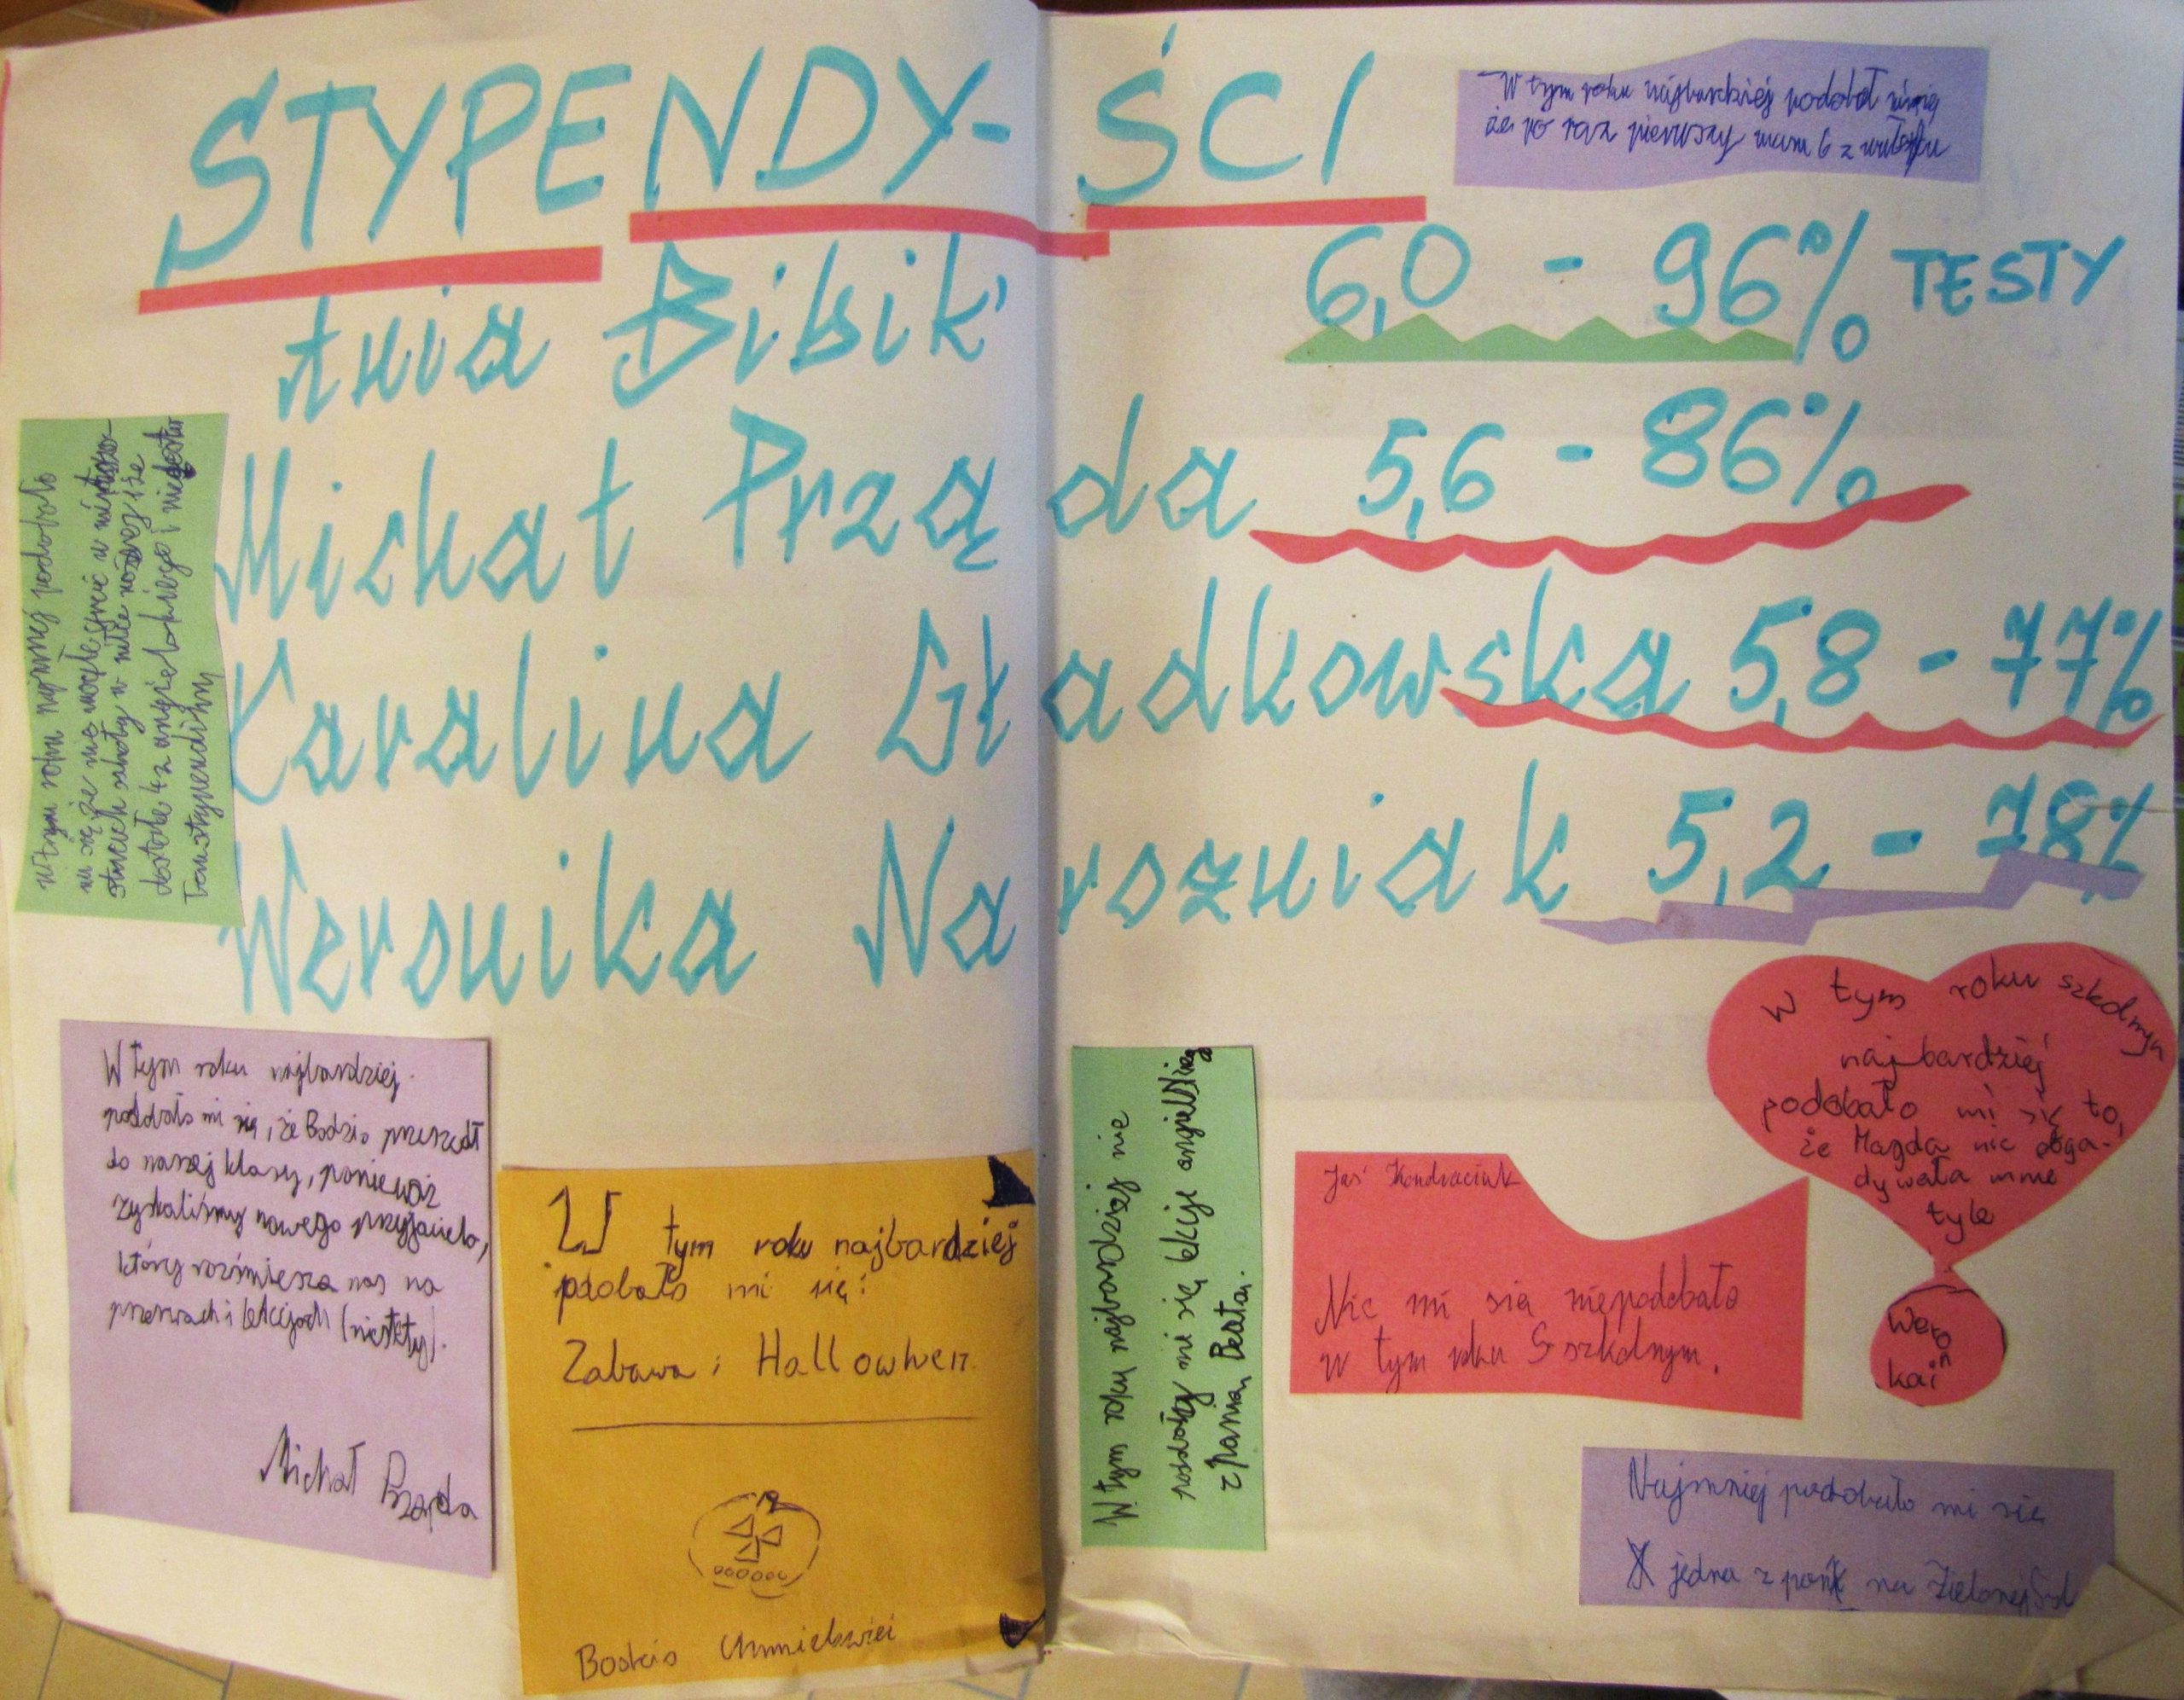 STYPENDY-ŚCI
W tym roku najbardziej podobał mi się
że po raz pierwszy mam 6 z
Ania Bibik 6,0 - 96% TESTY
Michał Prząda 5,6 - 86%
Karolina Gładkowska 5,8 - 77%
Weronika Narozniak 5,2 - 78%
w tym roku najmniej podobało
mi się że nie mogłe
szkoły w
dostałe 4 z angielskiego i
W tym roku najbardziej
podobało mi się, że Bodzio przeszedł
do naszej klasy, ponieważ
zyskaliśmy nowego przyjaciela,
który rozśmiesza nas na
przerwach i lekcjach (niestety).
Michał Prząda
W tym roku najbardziej
podobało mi się:
Zabawa i Hallowhen.
W tym roku najbardziej nie
podobały mi się lekcje
z Panią Beatą.
Jaś Kondraciuk
Nic mi sia niepodobało
w tym roku S szkolnym.
W tym roku szkolnym
najbardziej
podobało mi się to,
że Magda nie obga-
dywała mnie
tyle
Weronikai
Najmniej podobało mi sie
jedna z pań na Zielonej